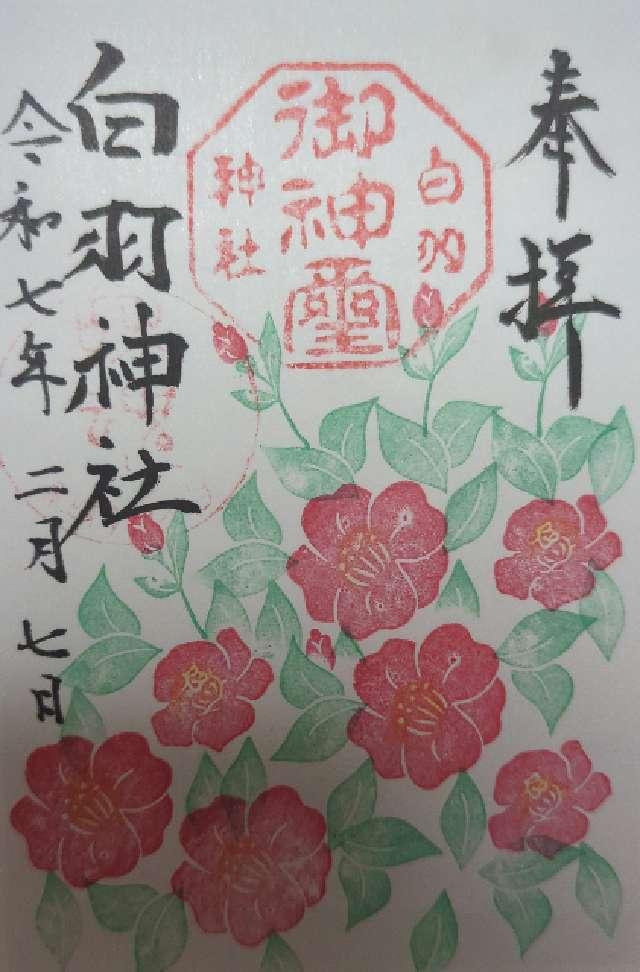 奉拝
白羽
御神璽
神社
白羽神社
令和七年二月七日